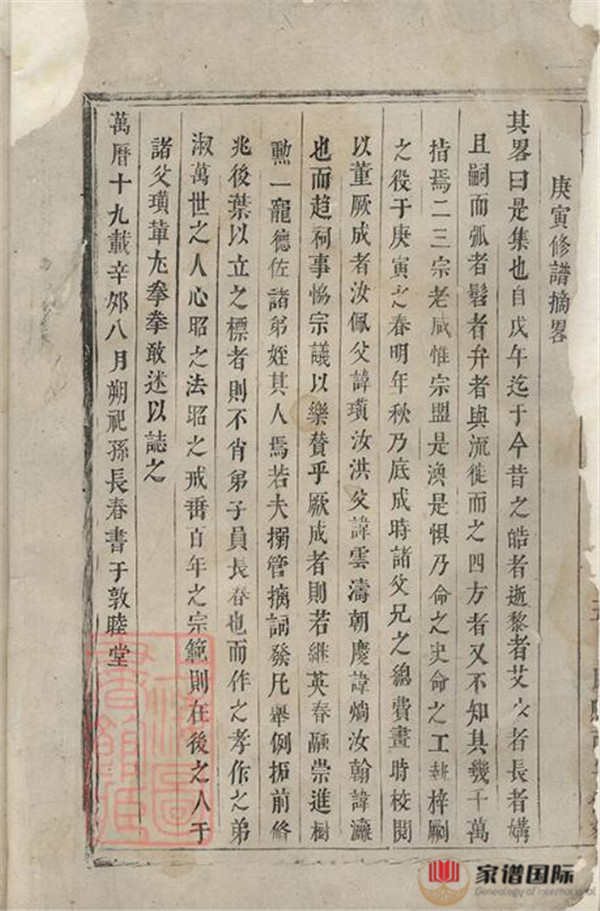 庚寅修譜摘畧
其畧曰是集也自戊午迄于今昔之皓者逝黎者艾少者長者媾
且嗣而弧者髫者弁者與流徙而之四方者又不知其幾千萬
指焉二三宗老咸惟宗盟是渙是惧乃命之史命之工耕梓劂
之役于庚寅之春明年秋乃底成時諸父兄之總費畫時校閱
以董厥成者汝佩父諱璜汝洪父諱雲濤朝慶諱熵汝翰諱瀛
也而趋祠事恊宗議以樂賛乎厥成者則若継英春融崇進樹
勲一寵德佐諸弟姪其人焉若夫搦管摛詞發凡舉例振前脩
兆後葉以立之標者則不肖弟子員長春也而作之孝作之弟
淑萬世之人心昭之法昭之戒垂百年之宗範則在後之人于
諸父璜軰尤拳拳敢述以誌之
萬曆十九載辛夘八月朔祀孫長春書于敦睦堂
家谱国际
Genealogy of International